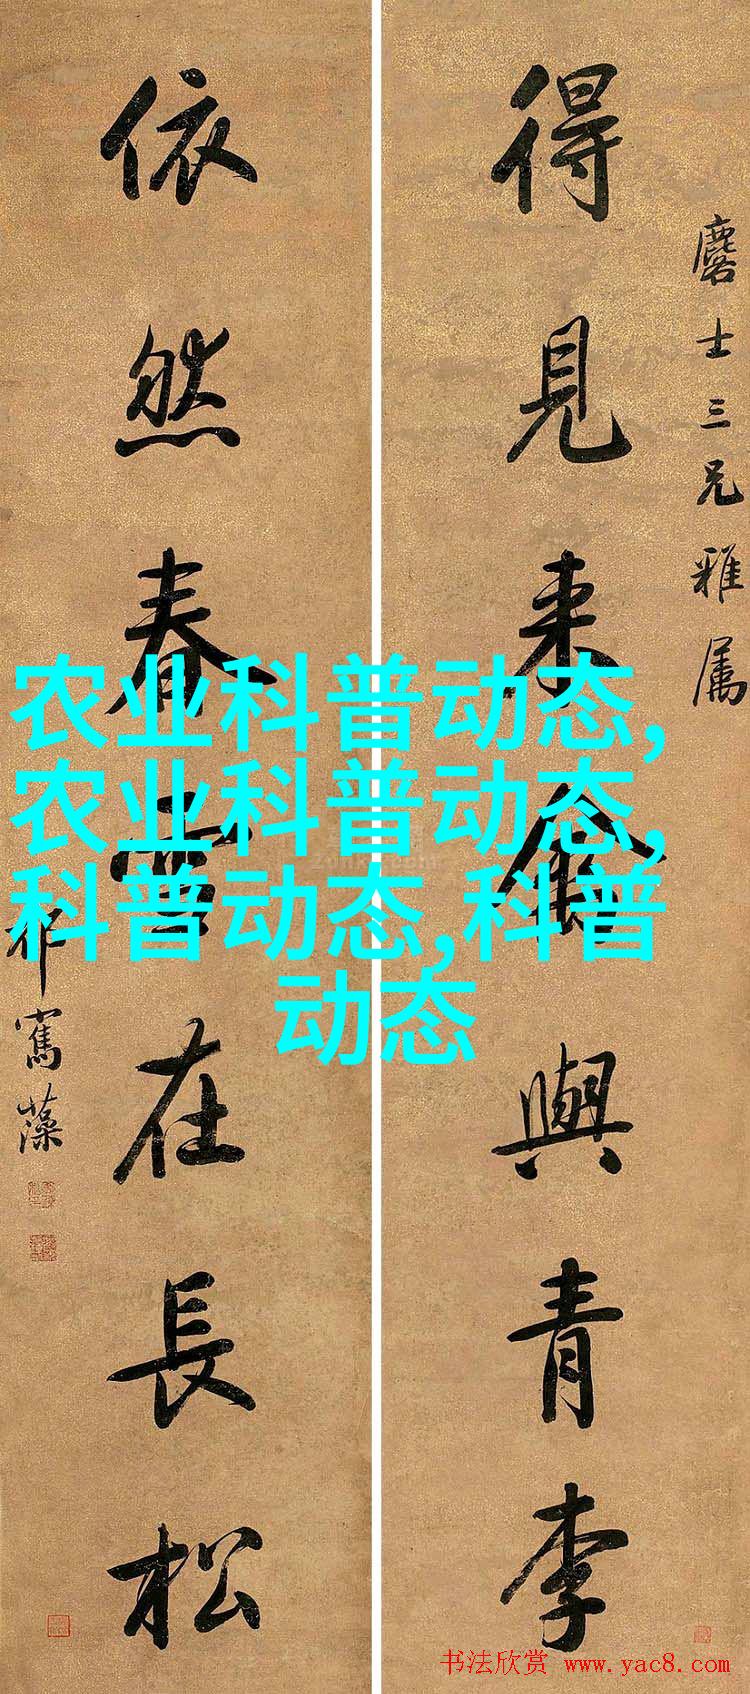 得見来禽與青李
麐士三兄雅属
依然春雪在長松
祁寯藻
农业科普动态,
农业科普动态,
科普动态,科普
动态
书法欣赏 www.yac8.com